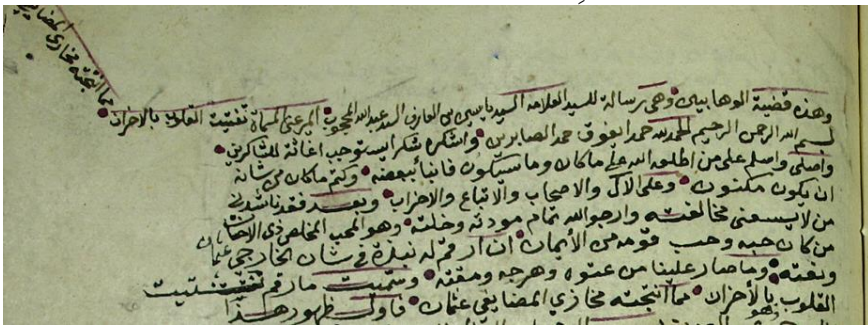 مما انتجته مخازي المضايفي
وهذه قضية الوهابيين وهي رسالة للسيد العلامة السيد ياسين بن العارف السيد عبدالله المحجوب الميرغني المسماة تفتيت القلوب بالاحزان
بسم الله الرحمن الرحيم الحمد لله حمدا يفوق حمد الصابرين واشكره شكرا يستوجب اغاثة للشاكرين
واصلي واسلم على من اطلعه الله على ماكان وما سيكون فانبأ ببعضه وكتم ماكان من شانه
ان يكون مكنون وعلى الآل والاصحاب والاتباع والاحزاب وبعد فقد ناشدني
من لا يسعني مخالفته وارجو الله تمام مودته وخلته وهو المحب المخلص ذي الاحسان
من كان حبه وحب قومه من الأيمان ان ارقم له نبذة في شان الخارجي عثمان
وبغيه وما صار علينا من عتوه وهرجه ومقته وسميت مارقم تفتيت
القلوب بالأحزان مما انتجته مخازي المضايفي عثمان فاول ظهور هذا